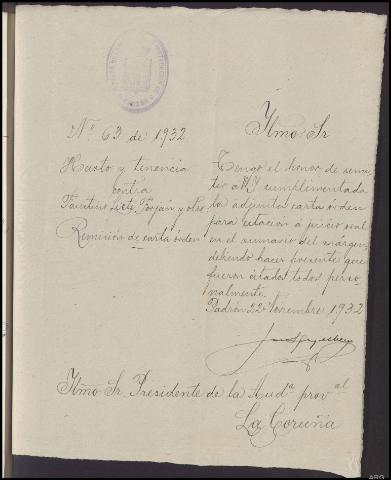 Nº 63 de 1932
Hurto y tenencia
contra
Faustino Liste Torján y otro
Remisión de carta órden
Iltmo Sr
Tengo el honor de remi-
tir a V.I. cumplimentada
la adjunta carta órden
para citacion á juicio oral
en el sumario del márgen,
debiendo hacer presente que
fueron citados todos perso-
nalmente.
Padrón 22 Novembre 1932
Iltmo Sr Presidente de la Audª provªl
La Coruña